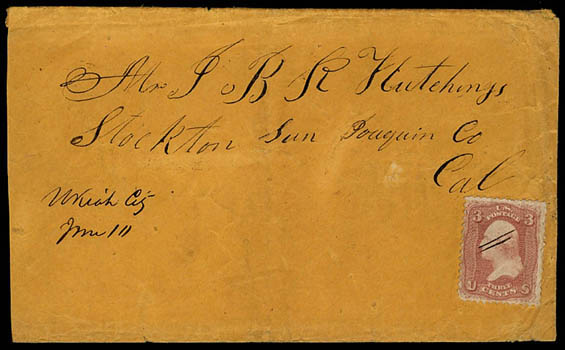 Mr J B R Hutchings
Stockton San Joaquin Co
Cal
Ukiah City
June 10
3 U.S. POSTAGE 3
U THREE CENTS S